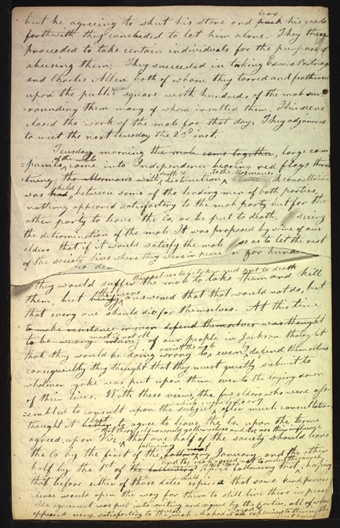 but he agreeing to shut his store and box his goods
forthwith they concluded to let him alone. They then
proceeded to take certain individuals for the purpose of
abusing them. They succeeded in taking Edward Partridge
and Charles Allen both of whom they tarred and feathered
upon the public square with hundreds of the mob sur-
rounding them many of whom insulted them. This scene
closed the work of the mob for that day. They adjourned
to meet the next tuesday the 23d inst.
Tuesday morning the mob came together, large com-
panies of the mob came into Independence bearing red flags
A consultation
was had between some of the leading men of both parties,
nothing appeared satisfactory to the mob party but for the
other party to leave the Co. or be put to death, seeing
the determination of the mob. It was proposed by some of our
elders that if it would satisfy the mob so as to let the rest
of the society live where they were in peace
They would suffer the mob to take them and kill
them, but they were answered that that would not do, but
that every one should die for themselves. At this time
to make resistance or even defend themselves was thought
to be wrong by most of our people in Jackson that
that they would be doing wrong to even defend themselves
consequently they thought that they must quietly submit to
whatever yoke was put upon them even to the laying down
of their lives. With these views, the few elders who were as-
sembled to consult upon the subject, after much consultation
thought it best to agree to leave the Co. upon the terms
agreed upon viz. that one half of the society should leave
the Co. by the first of the January, and the other
half by the 1st of the following that, hoping
that before either of those dates expired that some kind provi-
dence would open the way for them to still live there in peace